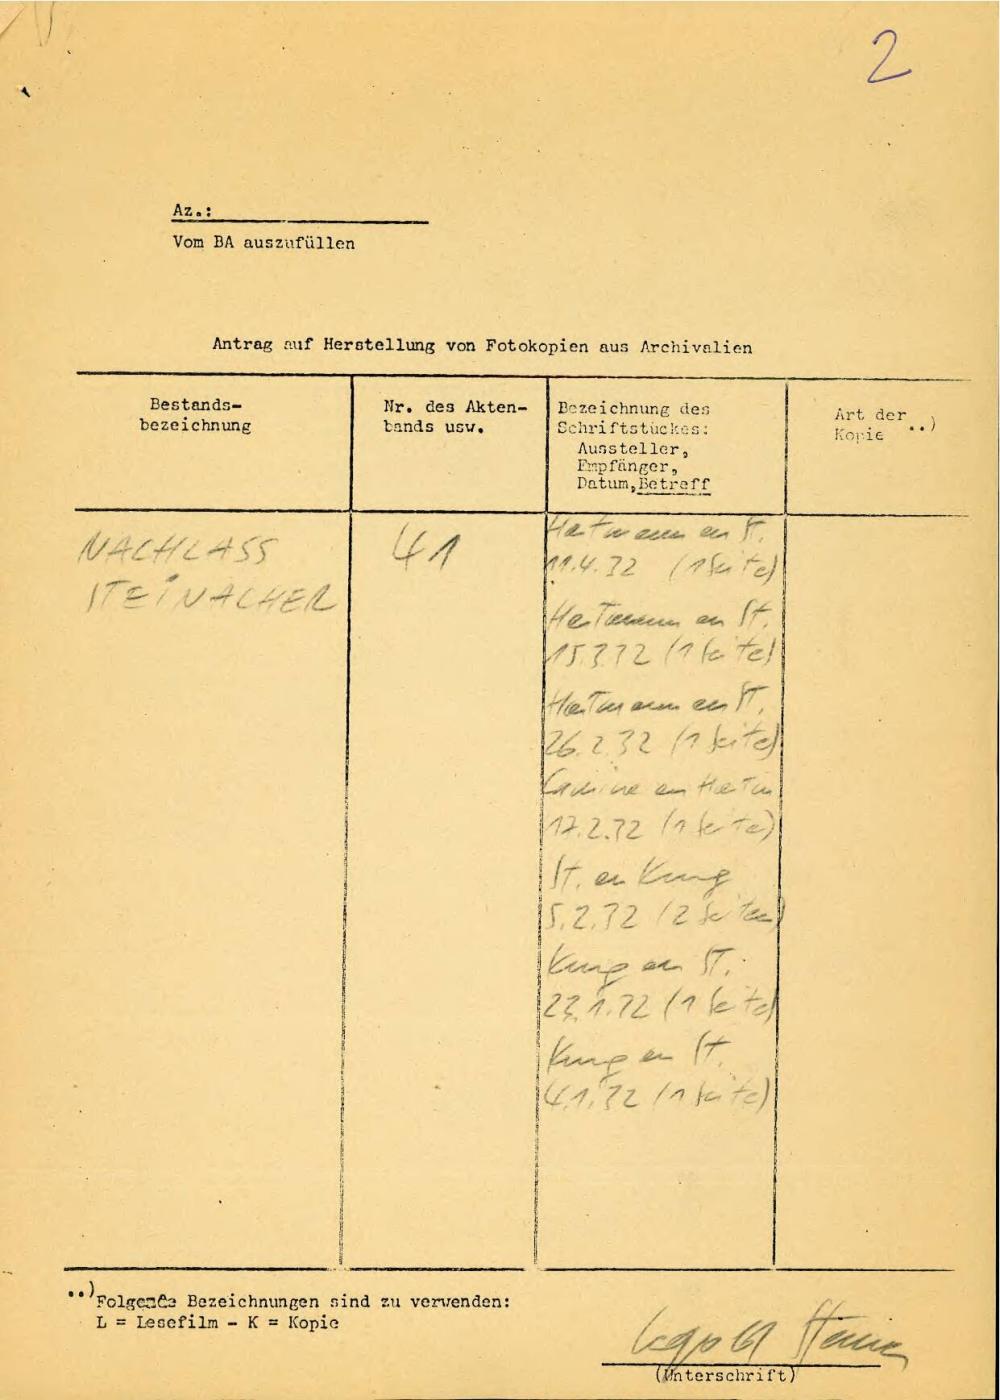 2
Az.:
Vom BA auszufüllen
Antrag auf Herstellung von Fotokopien aus Archivalien
Bestands-
bezeichnung
Nr. des Akten-
bands usw.
Bezeichnung des
Schriftstückes:
Aussteller,
Empfänger,
Datum, Betreff
Art der
Kopie ..)
NACHLASS
STEINACHER
41
Hatmann an St.
11.4.32 (1 Seite)
Hatmann an St.
15.3.32 (1 Seite)
Hatmann an St.
26.2.32 (1 Seite)
an Hatm
17.2.32 (1 Seite)
St. an Kung
5.2.32 (2 Seiten)
Kung an St.
23.1.32 (1 Seite)
Kung an St.
4.1.32 (1 Seite)
..) Folgende Bezeichnungen sind zu verwenden:
L = Lesefilm - K = Kopie
(Unterschrift)